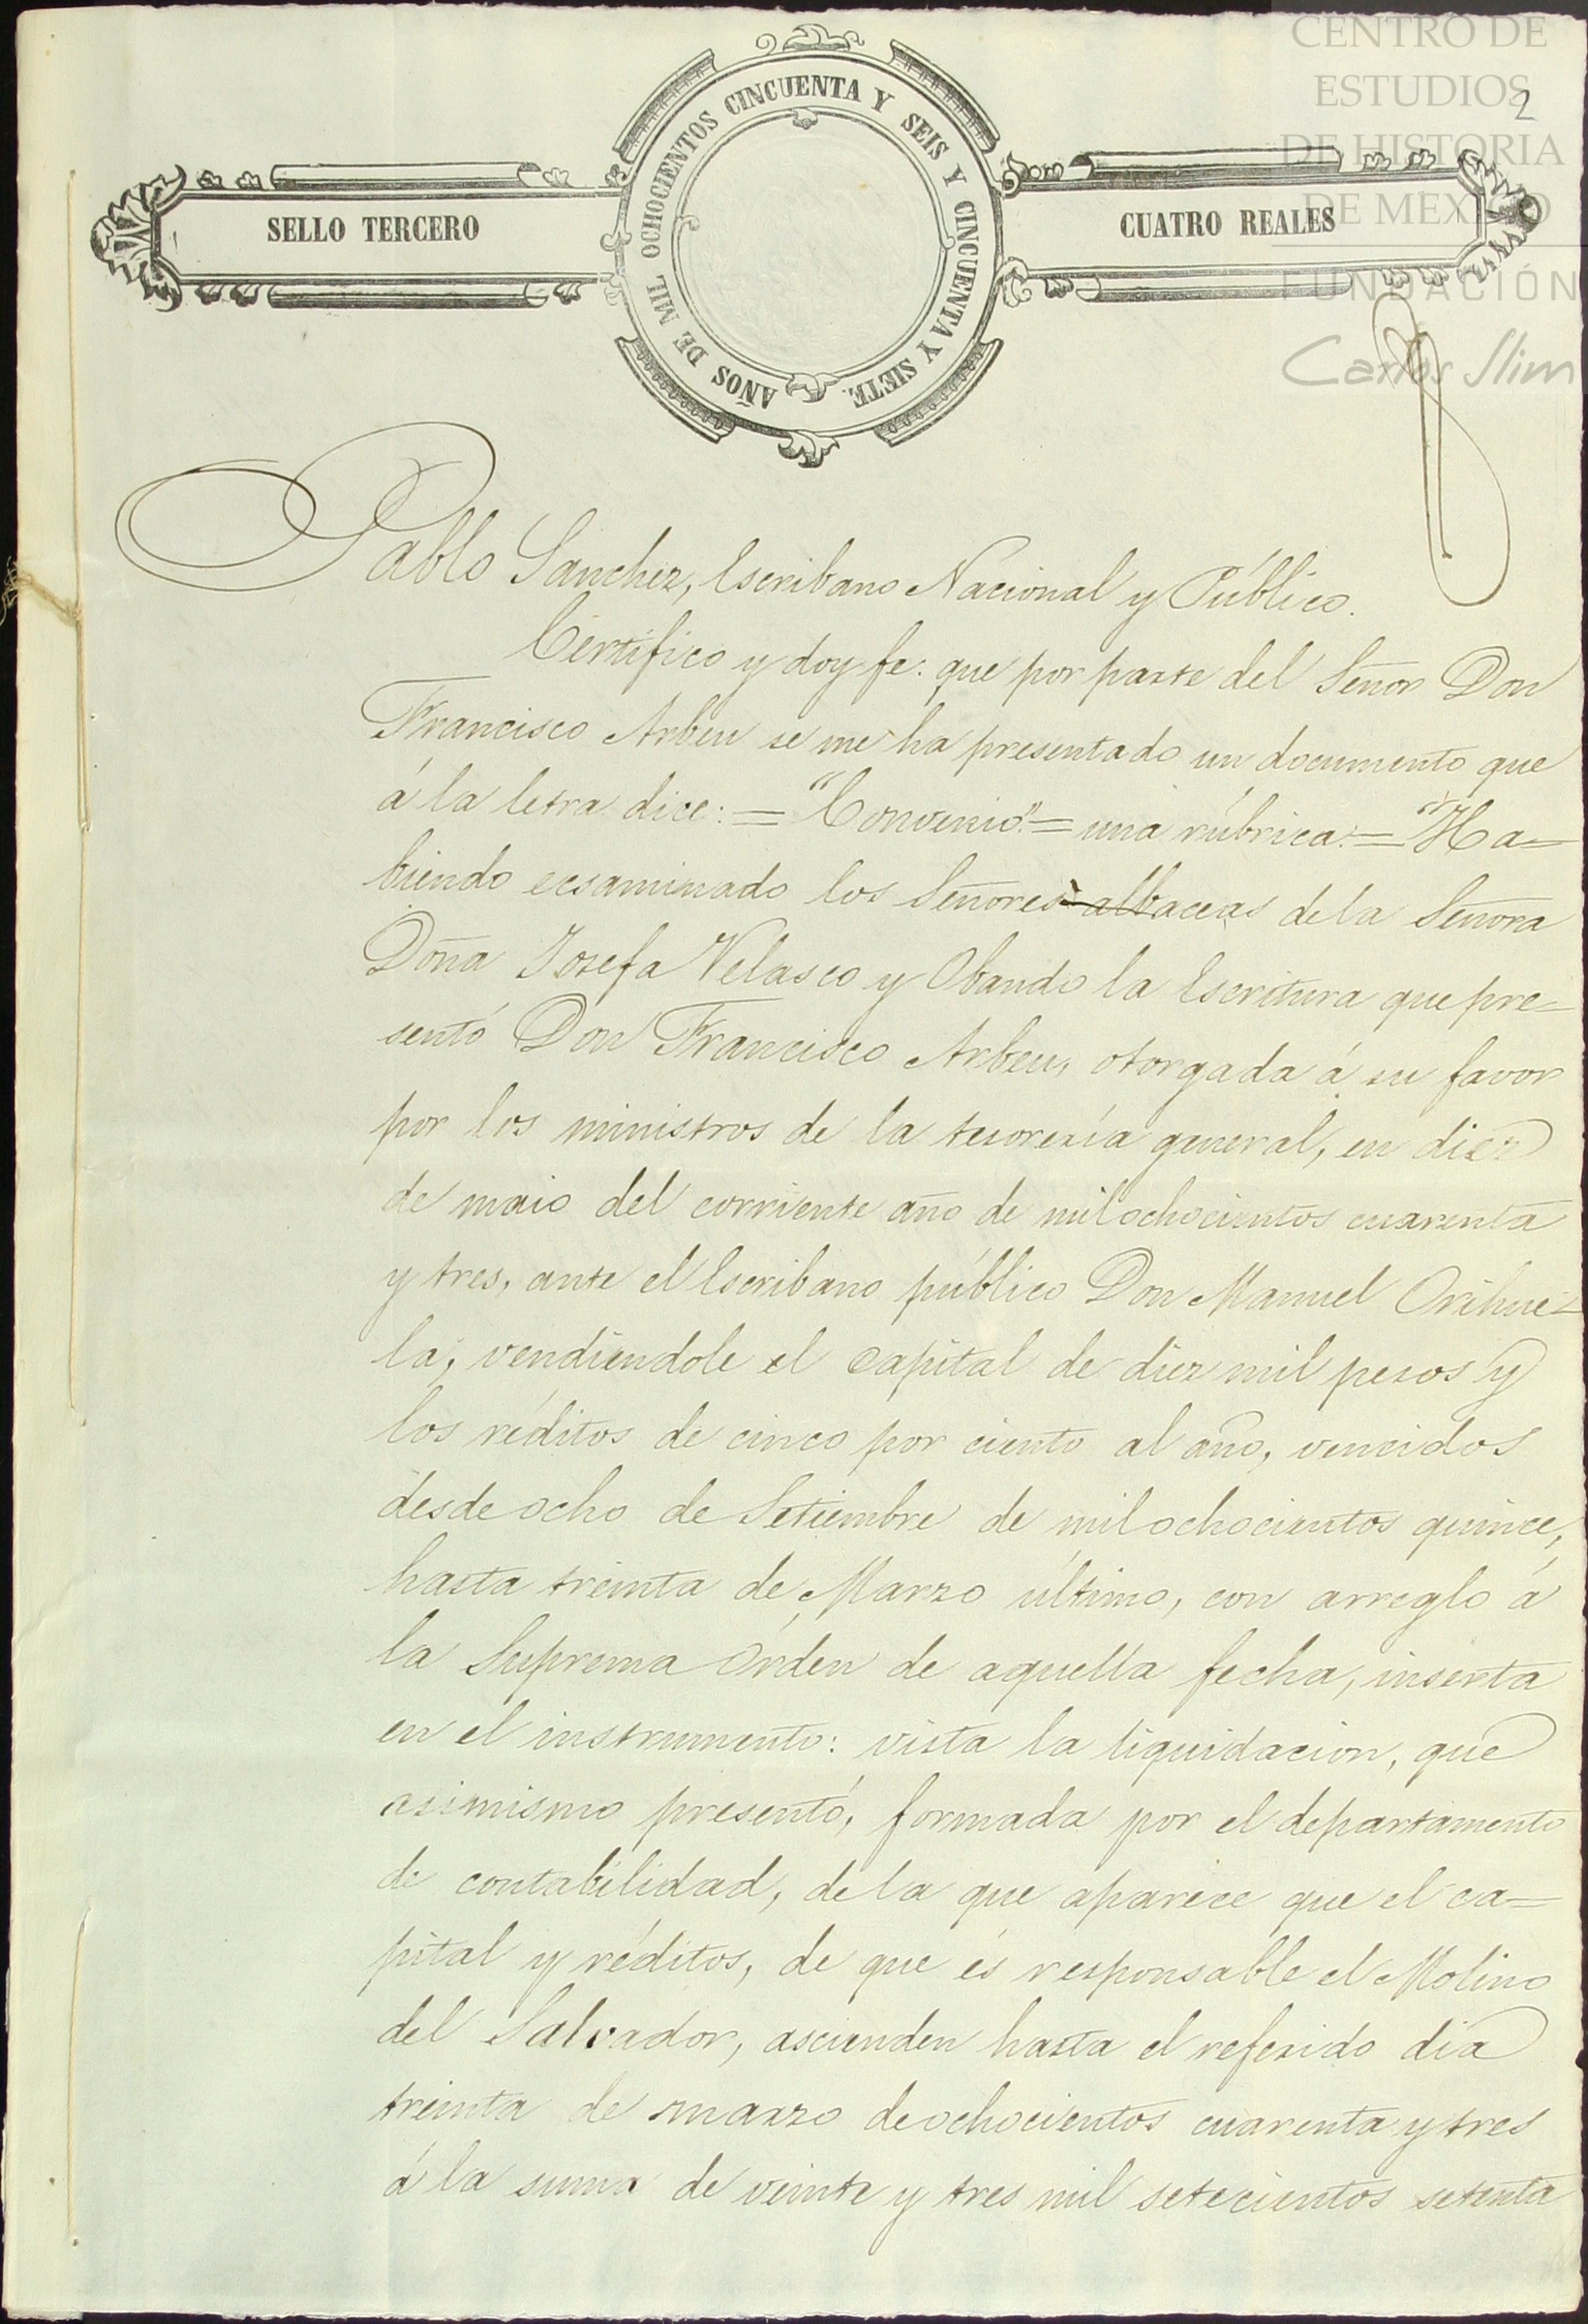 CENTRO DE
ESTUDIOS
DE HISTORIA
DE MEXICO
FUNDACIÓN
Carlos Slim
2
SELLO TERCERO
AÑOS DE MIL OCHOCIENTOS CINCUENTA Y SEIS Y CINCUENTA Y SIETE.
CUATRO REALES
Pablo Sanchez, Escribano Nacional y Público.
Certifico y doy fe: que por parte del Señor Don
Francisco Arbeu se me ha presentado un documento que
á la letra dice: = "Convenio" = una rúbrica. = "Ha=
biendo ecsaminado los Señores albaceas de la Señora
Doña Josefa Velasco y Obando la Escritura que pre=
sentó Don Francisco Arbeu, otorgada á su favor
por los ministros de la tesorería general, en diez
de maio del corriente año de mil ochocientos cuarenta
y tres, ante el Escribano público Don Manuel Orihue=
la, vendiendole el capital de diez mil pesos y
los réditos de cinco por ciento al año, vencidos
desde ocho de Setiembre de mil ochocientos quince,
hasta treinta de Marzo último, con arreglo á
la Suprema Órden de aquella fecha, inserta
en el instrumento: vista la liquidacion, que
asimismo presentó, formada por el departamento
de contabilidad, de la que aparece que el ca=
pital y réditos, de que és responsable el Molino
del Salvador, ascienden hasta el referido día
treinta de marzo de ochocientos cuarenta y tres
á la suma de veinte y tres mil setecientos setenta